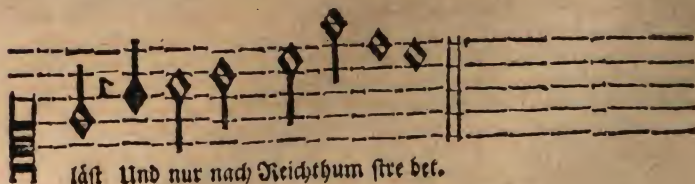 läst Und nur nach Reichthum stre bet.